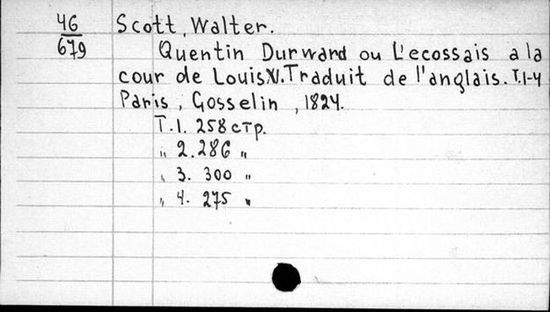 46 Scott, Walter.
679 Quentin Durward ou L'ecossais a la
cour de Louis XV. Traduit de l'anglais. T.1-4
Paris, Gosselin, 1824.
T.1. 258 стр.
„ 2. 286 „
„ 3. 300 „
„ 4. 275 „